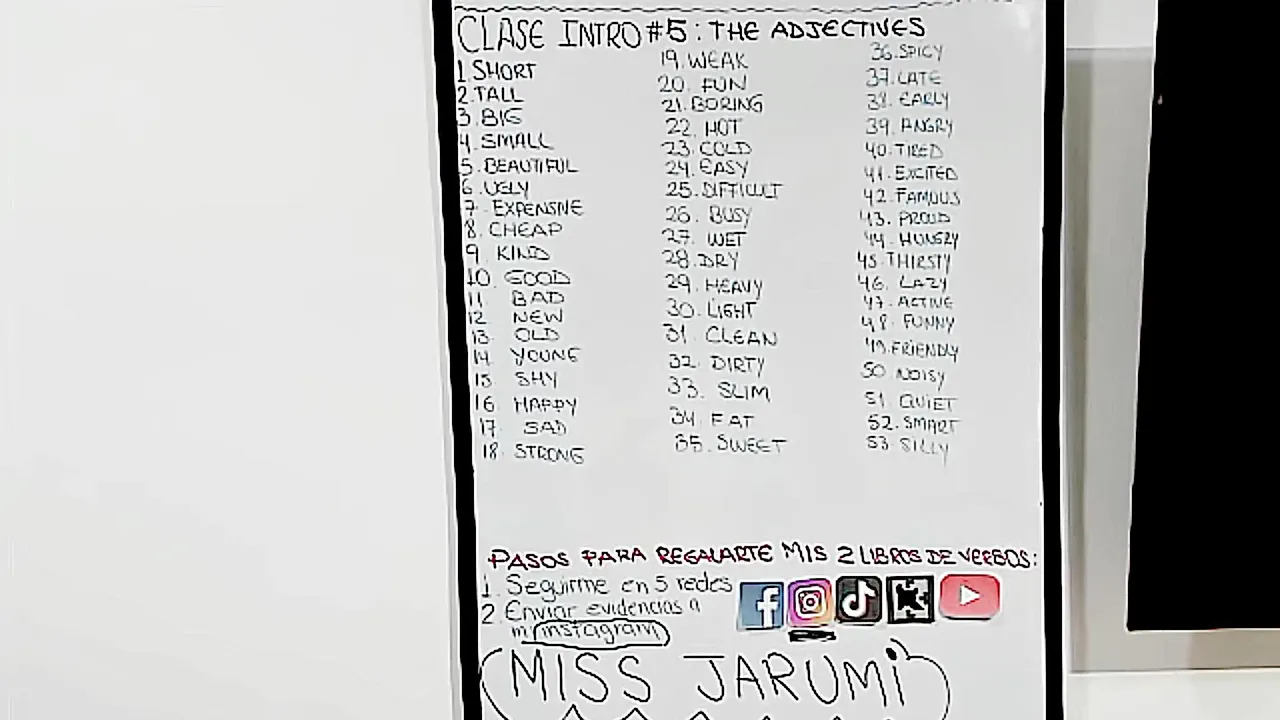 CLASE INTRO #5: THE ADJECTIVES
1. SHORT
2. TALL
3. BIG
4. SMALL
5. BEAUTIFUL
6. UGLY
7. EXPENSIVE
8. CHEAP
9. KIND
10. GOOD
11 BAD
12 NEW
13 OLD
14 YOUNG
15 SHY
16 HAPPY
17. SAD
18. STRONG
19. WEAK
20. FUN
21. BORING
22. HOT
23. COLD
24. EASY
25. DIFFICULT
26. BUSY
27. WET
28. DRY
29. HEAVY
30. LIGHT
31. CLEAN
32. DIRTY
33. SLIM
34. FAT
35. SWEET
36. SPICY
37. LATE
38. EARLY
39. ANGRY
40. TIRED
41. EXCITED
42. FAMOUS
43. PROUD
44. HUNGRY
45. THIRSTY
46. LAZY
47. ACTIVE
48. FUNNY
49. FRIENDLY
50 NOISY
51 QUIET
52. SMART
53 SILLY
PASOS PARA REGALARTE MIS 2 LIBROS DE VERBOS:
1. Seguirme en 5 redes
2. Enviar evidencias a
mi instagram
MISS JARUMI